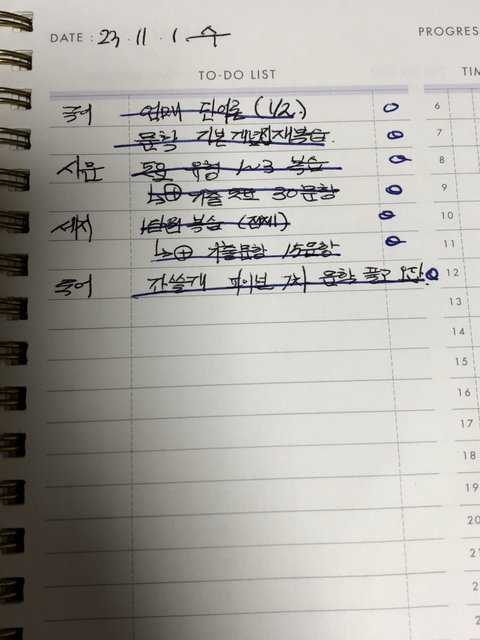 DATE : 23 . 11 . 1 수 PROGRES
TO-DO LIST TIM
국어 언매 단어 (1/2) 6
문학 기본개념 재복습 7
사문 도표 유형 1~3 복습 8
↳⊕ 기출 30문항 9
세지 복습 (전체) 10
↳⊕ 기출문항 15문항 11
국어 간쓸개 파이널 문학 풀고 오답 12
13
14
15
16
17
18
19
20
21
2
2